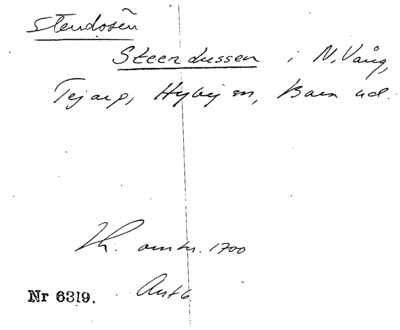 Stendosen
Steendussen i N. Vång,
Tejarp, Hyby sn, Bara hd.
Lk. omkr. 1700
Ant 6
Nr 6319.